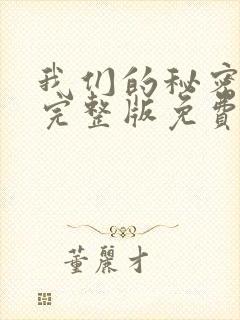 我们的秘密
完整版免費
董麗才